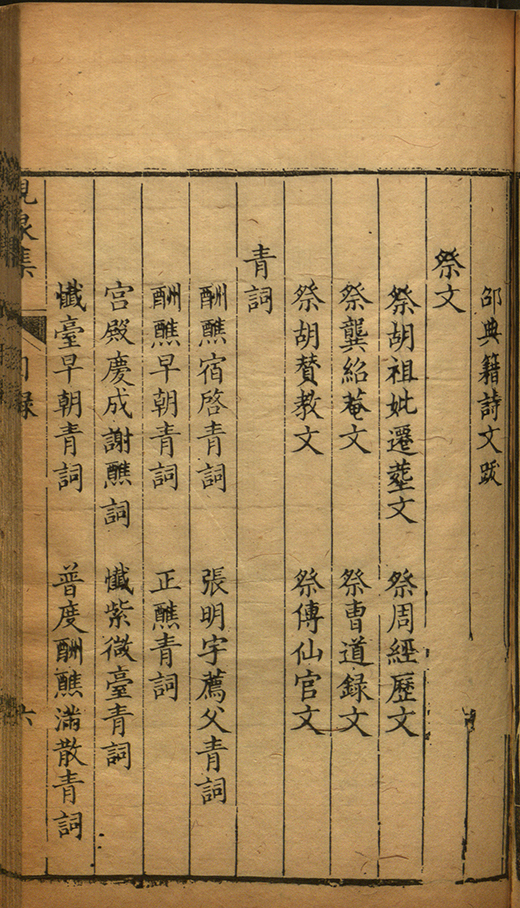 邵典籍詩文跋
祭文
祭胡祖妣遷塟文 祭周經歷文
祭龔紹菴文 祭曹道録文
祭胡賛教文 祭傅仙官文
青詞
酬醮宿啓青詞 張明宇薦父青詞
酬醮早朝青詞 正醮青詞
宫殿慶成謝醮詞 懴紫微臺青詞
懴臺早朝青詞 普度酬醮滿散青詞
泉集 目録 六